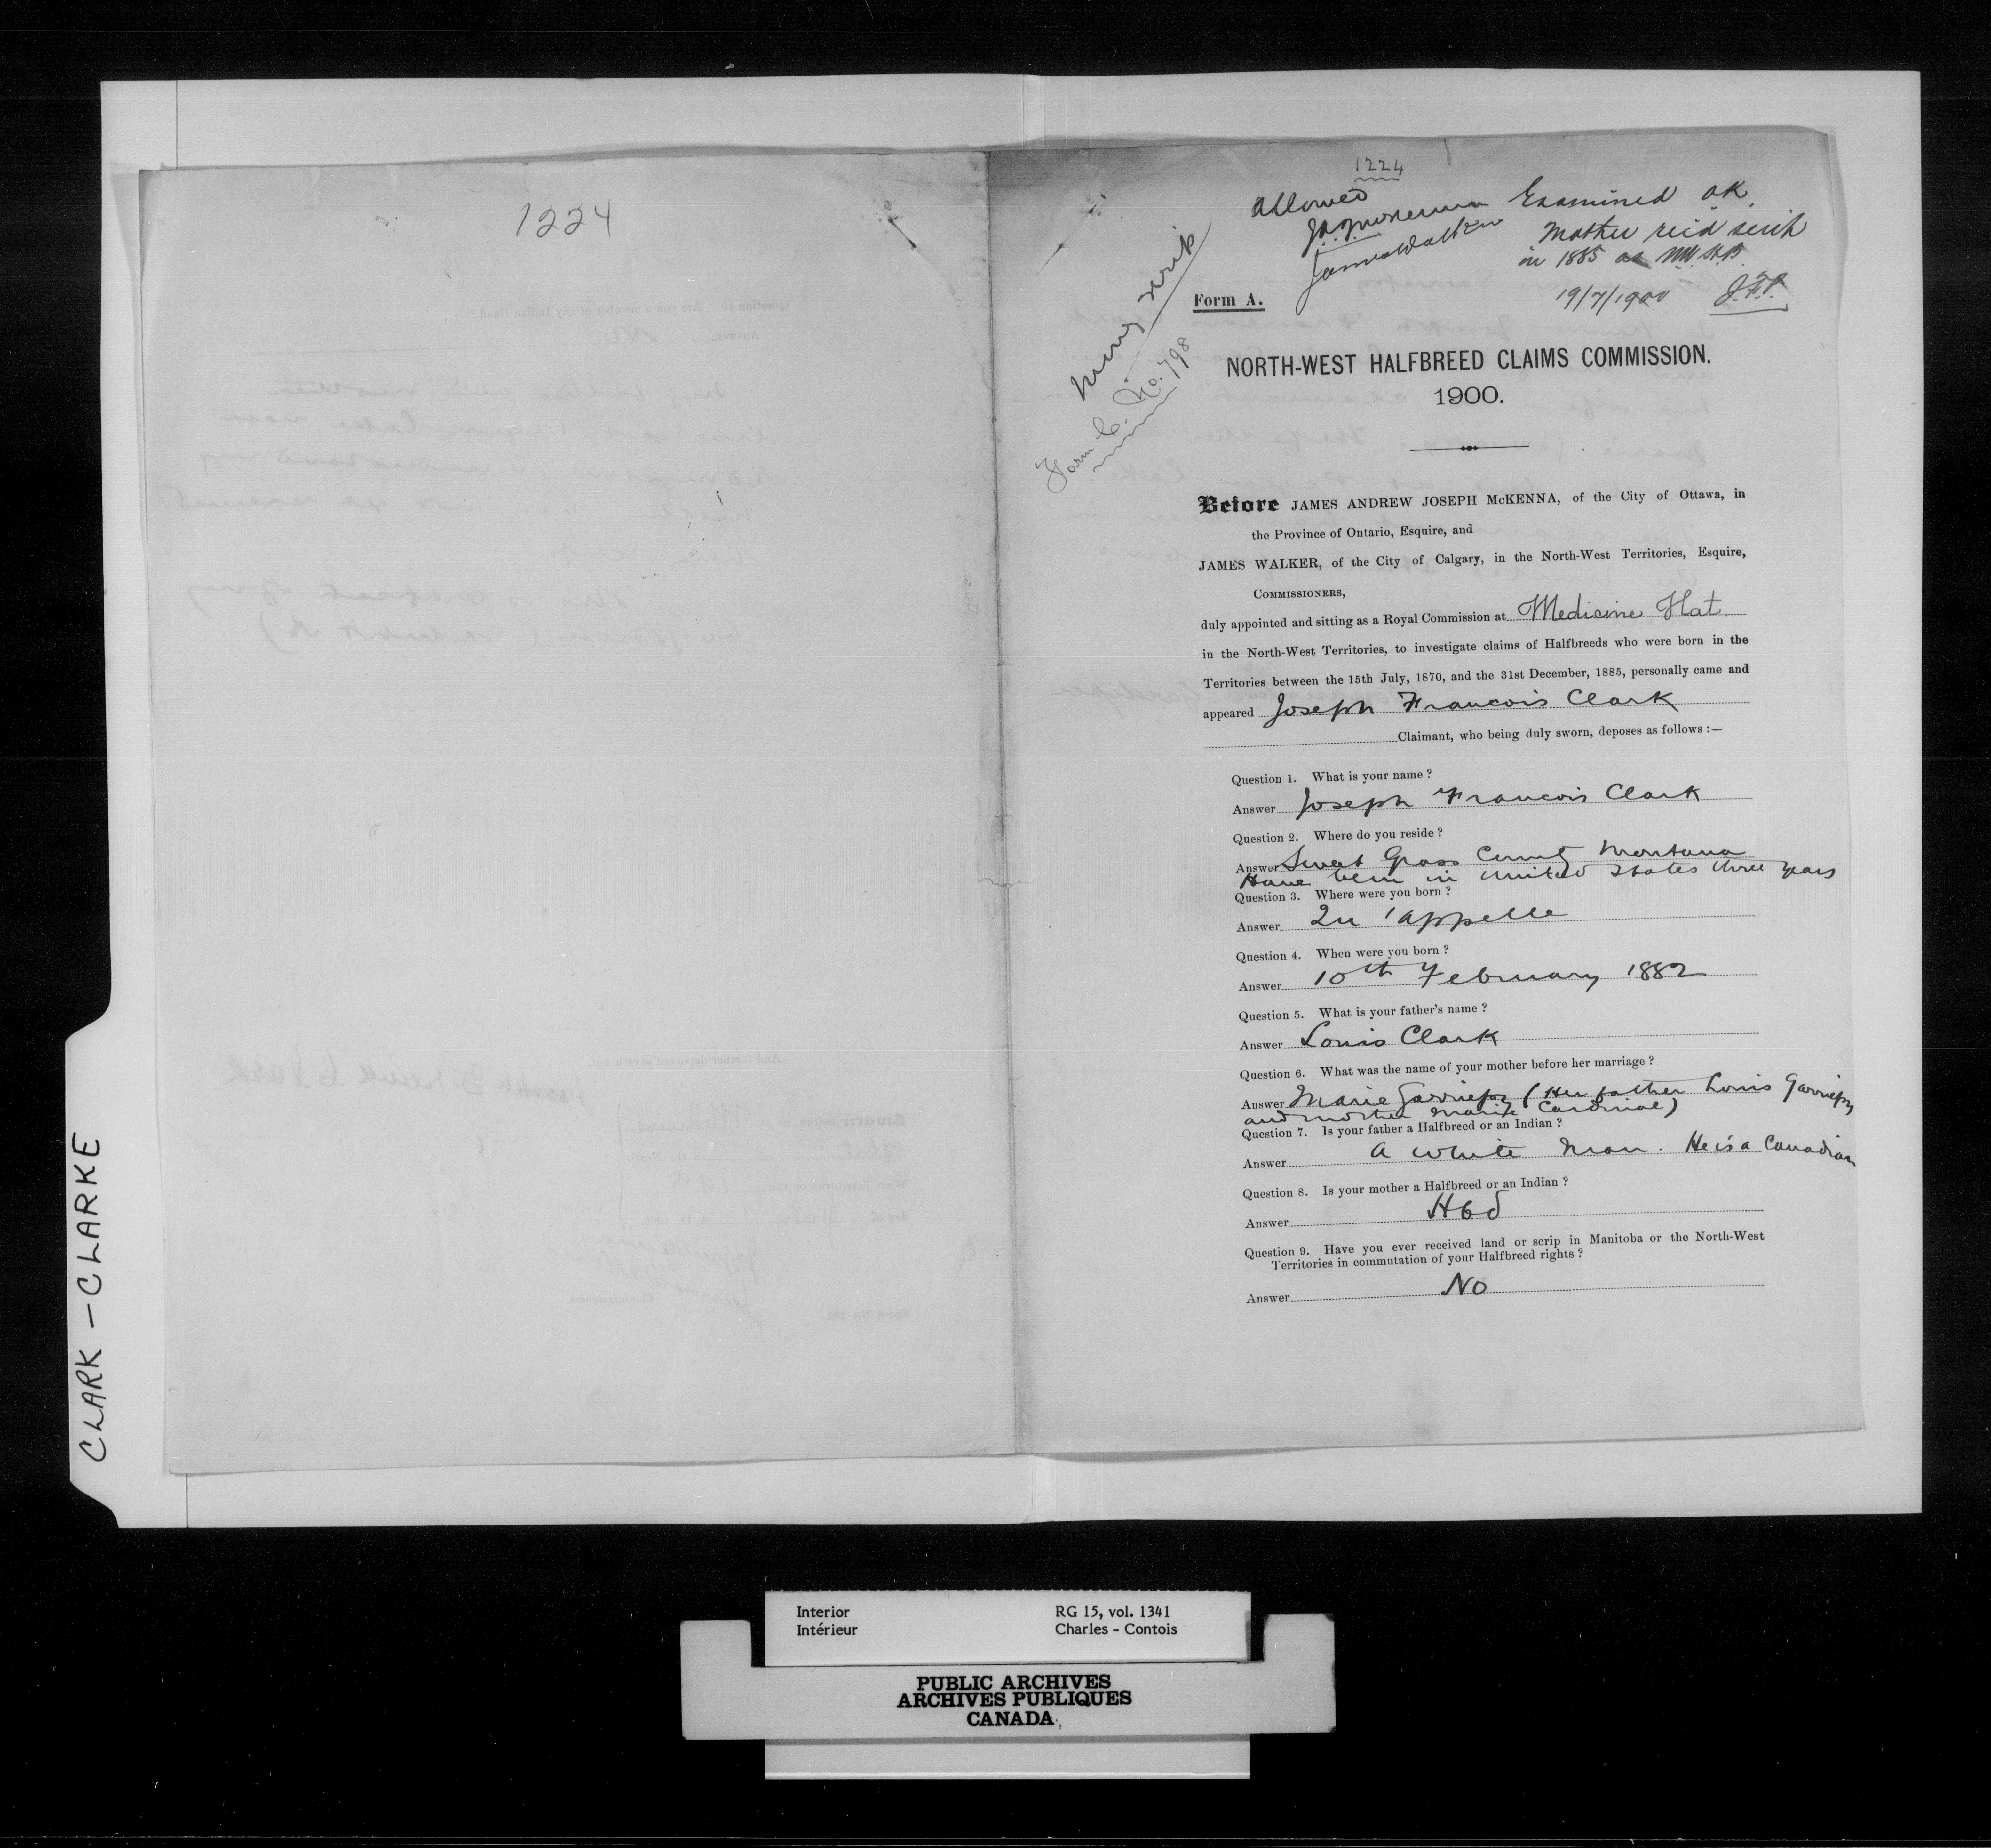 1224
1224
allowed
J.A.J. McKenna
James Walker
Examined OK.
Mother rec'd scrip
in 1885 as NW H.B.
19/7/1900 J.F.P.
money scrip
Form C. No. 798
Form A.
NORTH-WEST HALFBREED CLAIMS COMMISSION.
1900.
Before JAMES ANDREW JOSEPH McKENNA, of the City of Ottawa, in
the Province of Ontario, Esquire, and
JAMES WALKER, of the City of Calgary, in the North-West Territories, Esquire,
COMMISSIONERS,
duly appointed and sitting as a Royal Commission at Medicine Hat
in the North-West Territories, to investigate claims of Halfbreeds who were born in the
Territories between the 15th July, 1870, and the 31st December, 1885, personally came and
appeared Joseph Francois Clark
Claimant, who being duly sworn, deposes as follows :—
Question 1. What is your name ?
Answer Joseph Francois Clark
Question 2. Where do you reside ?
Answer Sweet Grass County Montana
Have been in United States three years
Question 3. Where were you born ?
Answer Qu'appelle
Question 4. When were you born ?
Answer 10th February 1882
Question 5. What is your father's name ?
Answer Louis Clark
Question 6. What was the name of your mother before her marriage ?
Answer Marie Garriepy (Her father Louis Garriepy
and mother Marie Cardinal)
Question 7. Is your father a Halfbreed or an Indian ?
Answer A white man. He is a Canadian
Question 8. Is your mother a Halfbreed or an Indian ?
Answer Hbd
Question 9. Have you ever received land or scrip in Manitoba or the North-West
Territories in commutation of your Halfbreed rights ?
Answer No
CLARK - CLARKE
Interior RG 15, vol. 1341
Intérieur Charles - Contois
PUBLIC ARCHIVES
ARCHIVES PUBLIQUES
CANADA